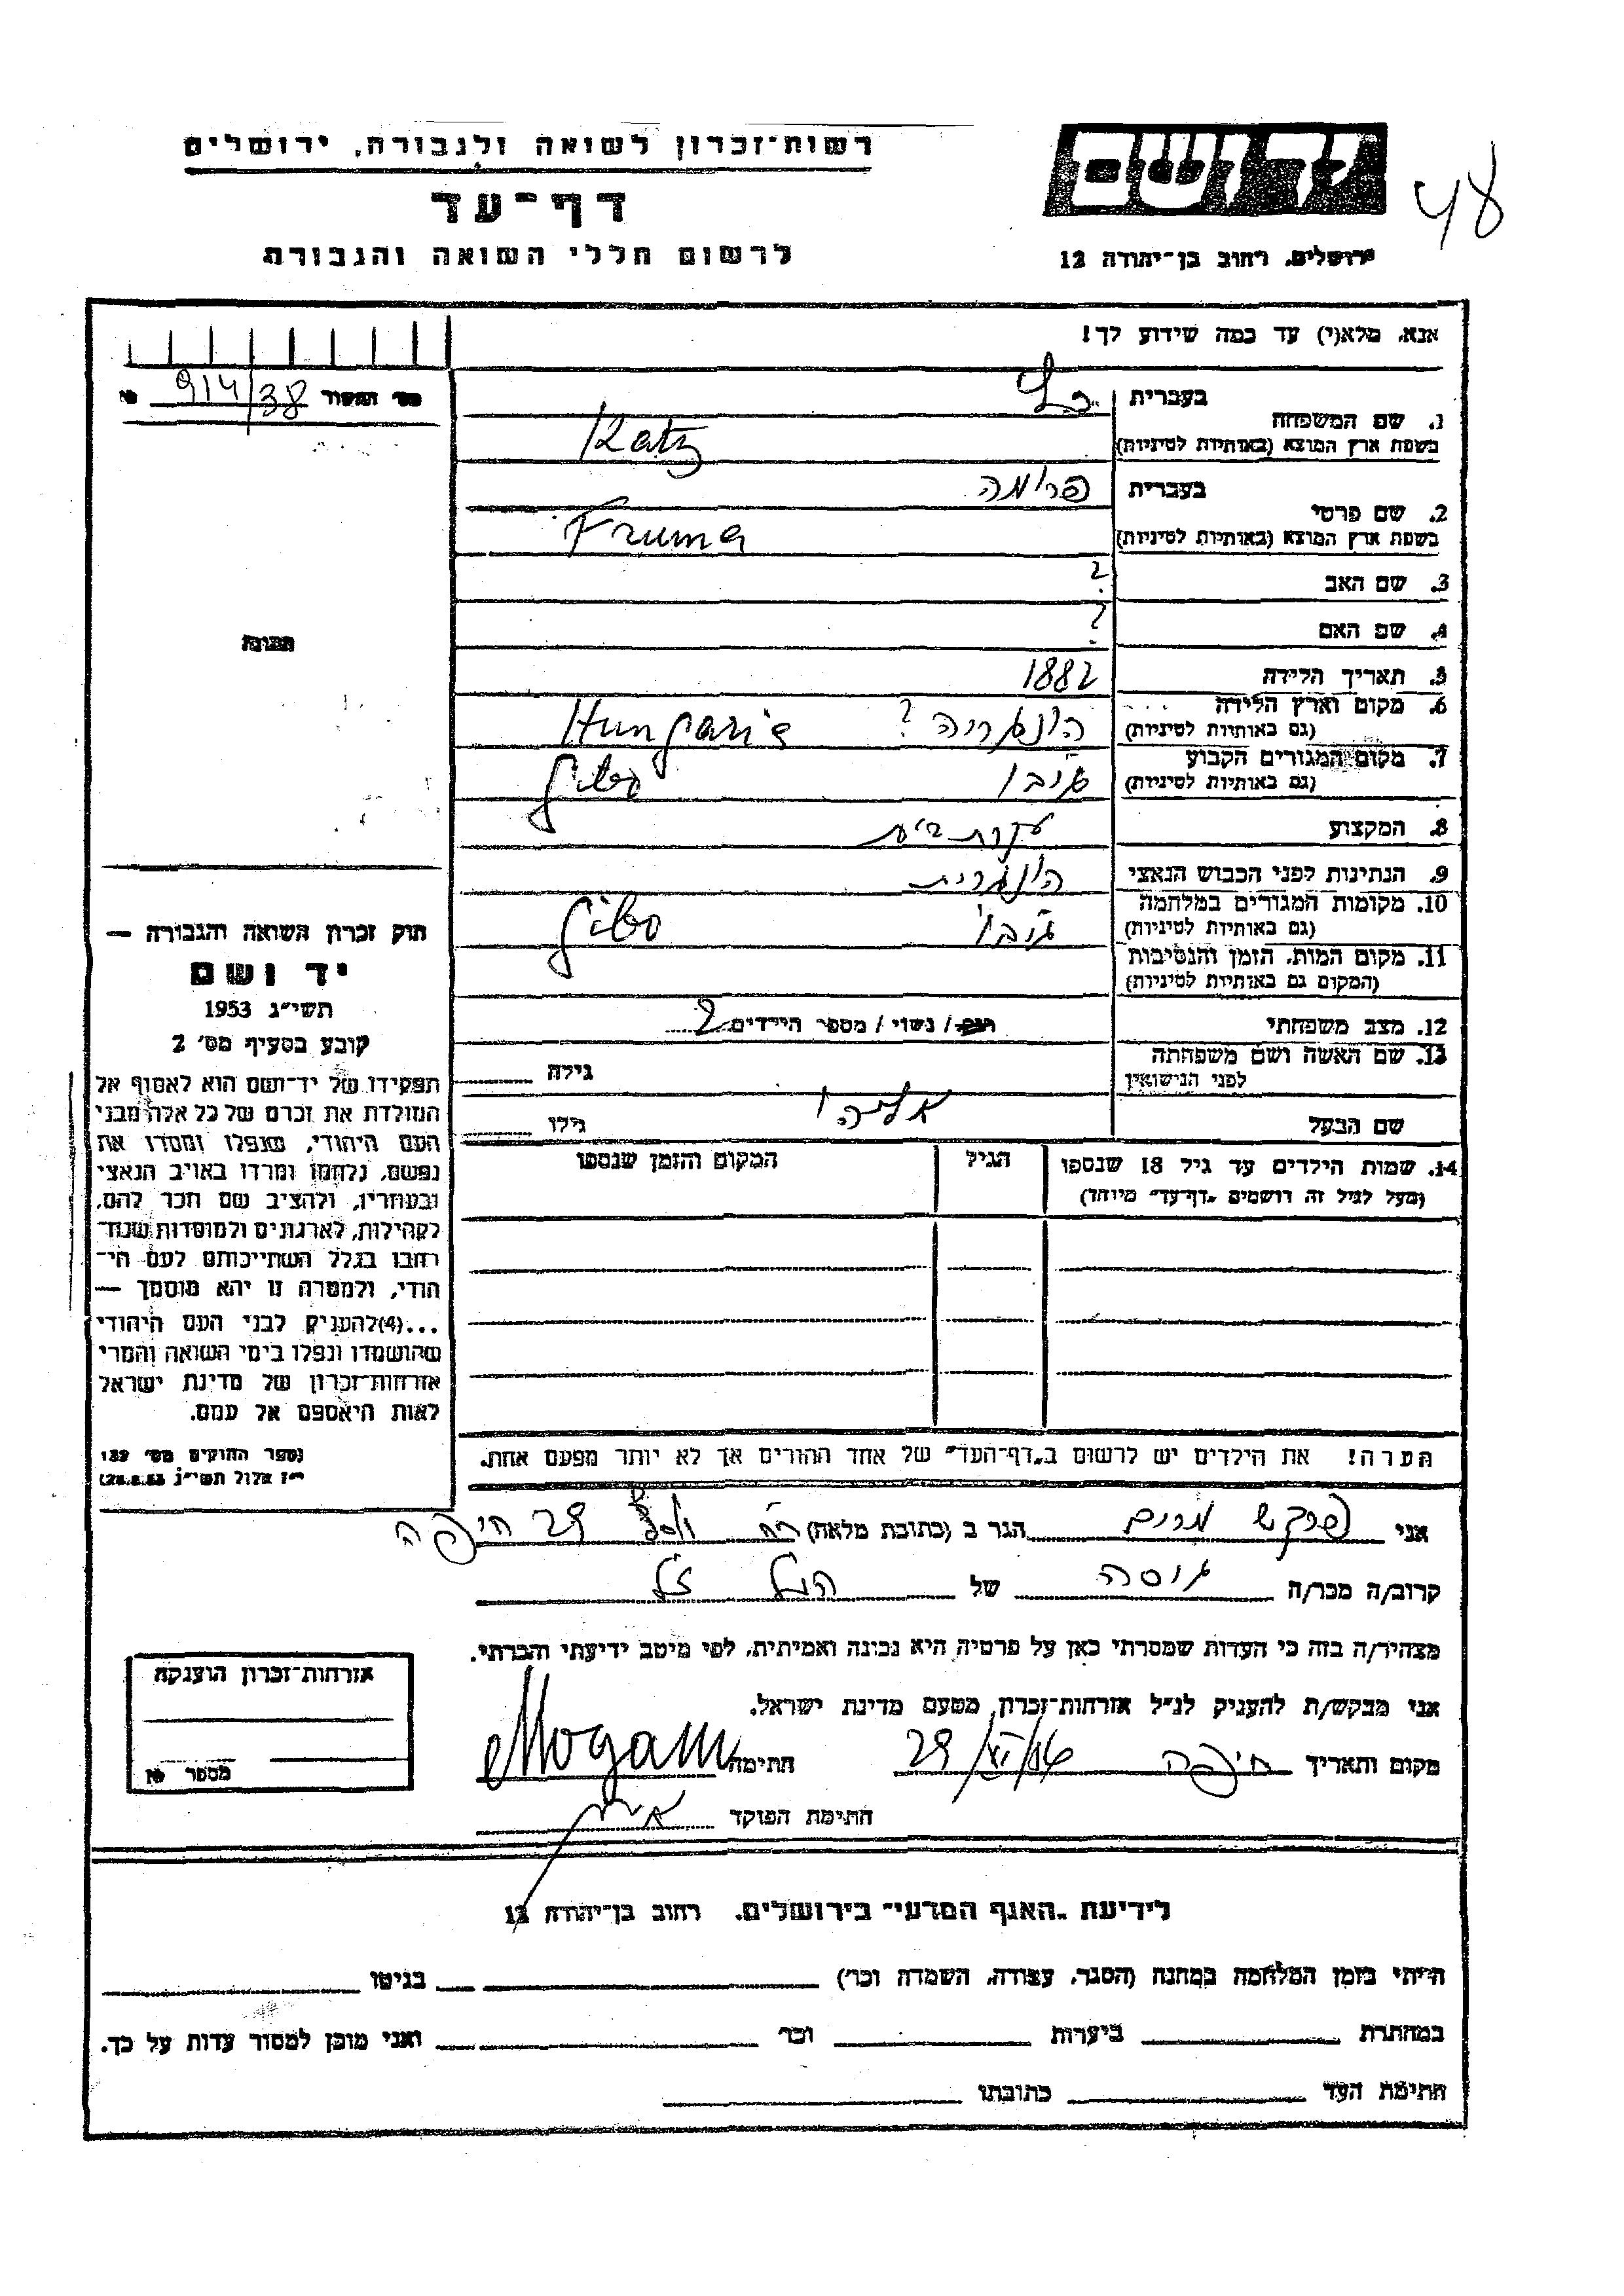 רשות־זכרון לשואה ולגבורה, ירושלים
דף־עד
לרשום חללי השואה והגבורה
יד ושם
48
ירושלים, רחוב בן־יהודה 12
אנא, מלא(י) עד כמה שידוע לך!
מס׳ № 914/38
1. שם המשפחה בעברית כץ
בשפת ארץ המוצא (באותיות לטיניות) Katz
2. שם פרטי בעברית פרומה
בשפת ארץ המוצא (באותיות לטיניות) Fruma
3. שם האב ?
4. שם האם ?
תמונה
5. תאריך הלידה 1882
6. מקום וארץ הלידה
(גם באותיות לטיניות) הונגריה ? Hungaria
7. מקום המגורים הקבוע
(גם באותיות לטיניות)
8. המקצוע עקרת בית
9. הנתינות לפני הכבוש הנאצי הונגרית
10. מקומות המגורים במלחמה
(גם באותיות לטיניות)
11. מקום המות, הזמן והנסיבות
(המקום גם באותיות לטיניות)
12. מצב משפחתי רווק / נשוי / מספר הילדים 2
13. שם האשה ושם משפחתה
לפני הנישואין גילה
שם הבעל אליהו גילו
14. שמות הילדים עד גיל 18 שנספו הגיל המקום והזמן שנספו
(מעל לגיל זה רושמים „דף־עד" מיוחד)
הערה! את הילדים יש לרשום ב„דף־העד" של אחד ההורים אך לא יותר מפעם אחת.
חוק זכרון השואה והגבורה —
יד ושם
תשי״ג 1953
קובע בסעיף מס׳ 2
תפקידו של יד־ושם הוא לאסוף אל
המולדת את זכרם של כל אלה מבני
העם היהודי, שנפלו ומסרו את
נפשם, נלחמו ומרדו באויב הנאצי
ובעוזריו, ולהציב שם וזכר להם,
לקהילות, לארגונים ולמוסדות שנח־
רבו בגלל השתייכותם לעם הי־
הודי, ולמטרה זו יהא מוסמך —
...(4) להעניק לבני העם היהודי
שהושמדו ונפלו בימי השואה והמרי
אזרחות־זכרון של מדינת ישראל
לאות היאספם אל עמם.
(ספר החוקים מס׳ 132
י״ז אלול תשי״ג 28.8.53)
אני פרקש מרים הגר ב (כתובת מלאה) רח׳ 29 חיפה
קרוב/ה מכר/ה גיסה של הנ״ל ז״ל
מצהיר/ה בזה כי העדות שמסרתי כאן על פרטיה היא נכונה ואמיתית, לפי מיטב ידיעתי והכרתי.
אני מבקש/ת להעניק לנ״ל אזרחות־זכרון, מטעם מדינת ישראל.
מקום ותאריך חיפה חתימה
חתימת הפוקד
אזרחות־זכרון הוענקה
מספר №
לידיעת „האגף המדעי" בירושלים, רחוב בן־יהודה 12
הייתי בזמן המלחמה במחנה (הסגר, עבודה, השמדה וכו׳) בגיטו
במחתרת ביערות וכו׳ ואני מוכן למסור עדות על כך.
חתימת העד כתובתו